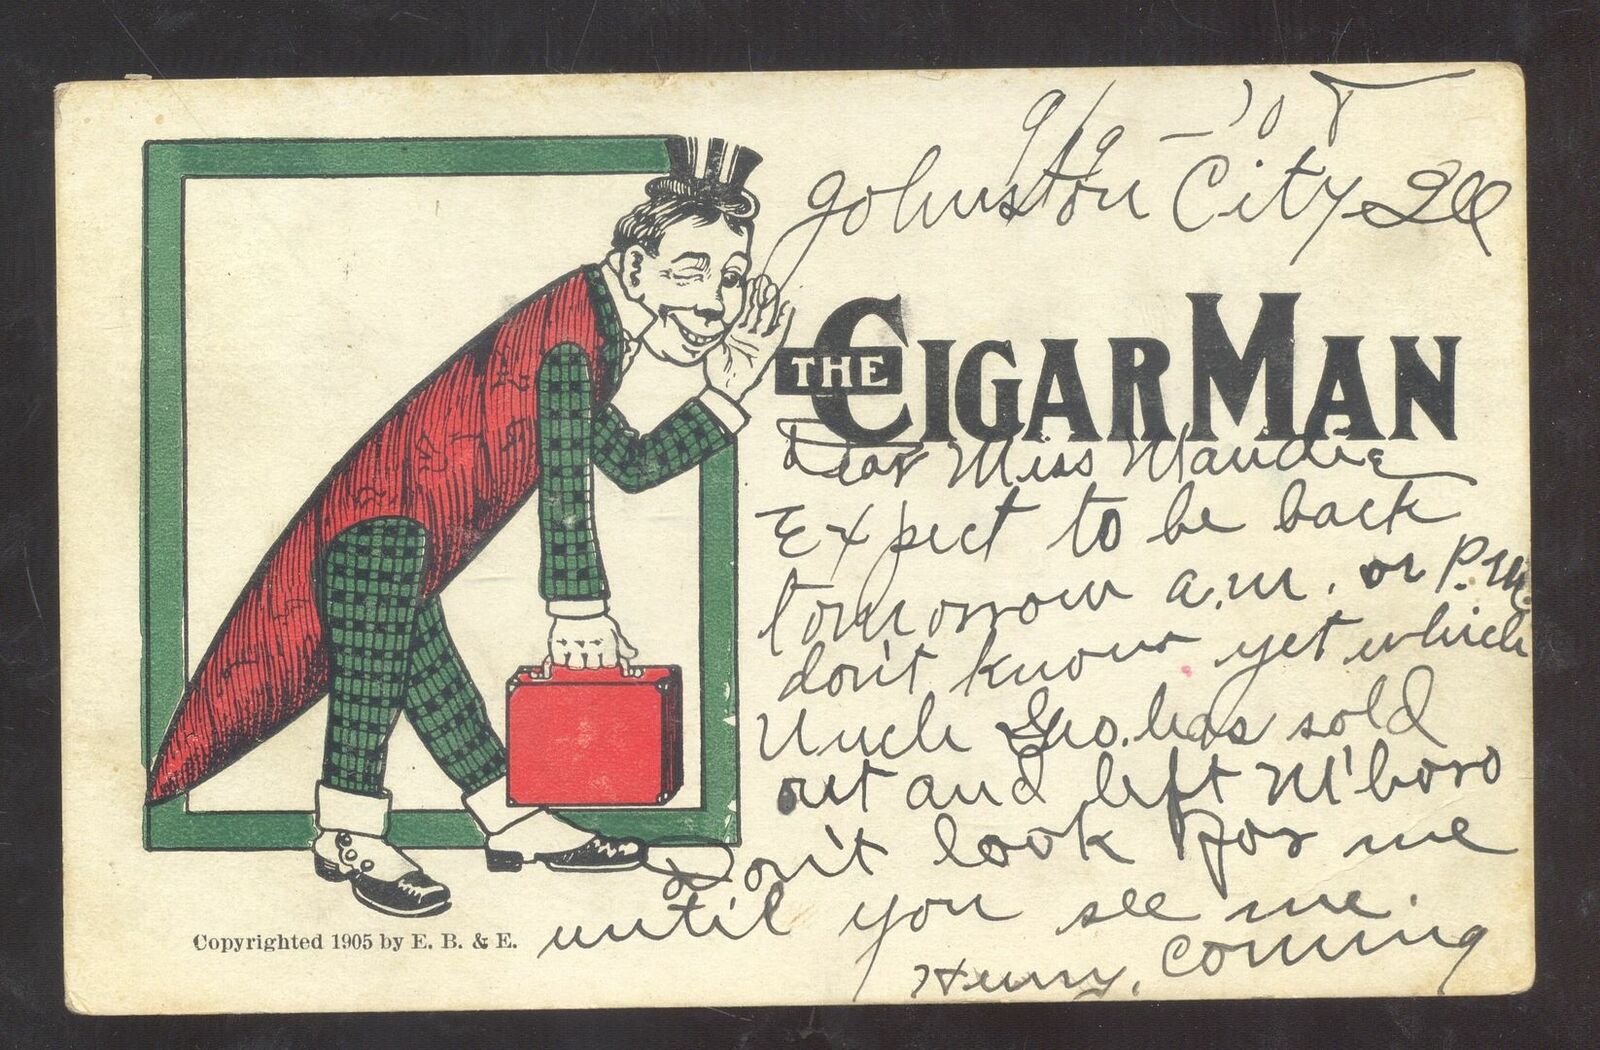 9/9 - '05
Johnston City Ill
THE CIGAR MAN
Dear Miss Maudie
Expect to be back
tomorrow a.m. or P.M.
don't know yet which
Uncle Geo. has sold
out and left M'boro
Don't look for me
until you see me.
Henry. coming
Copyrighted 1905 by E. B. & E.